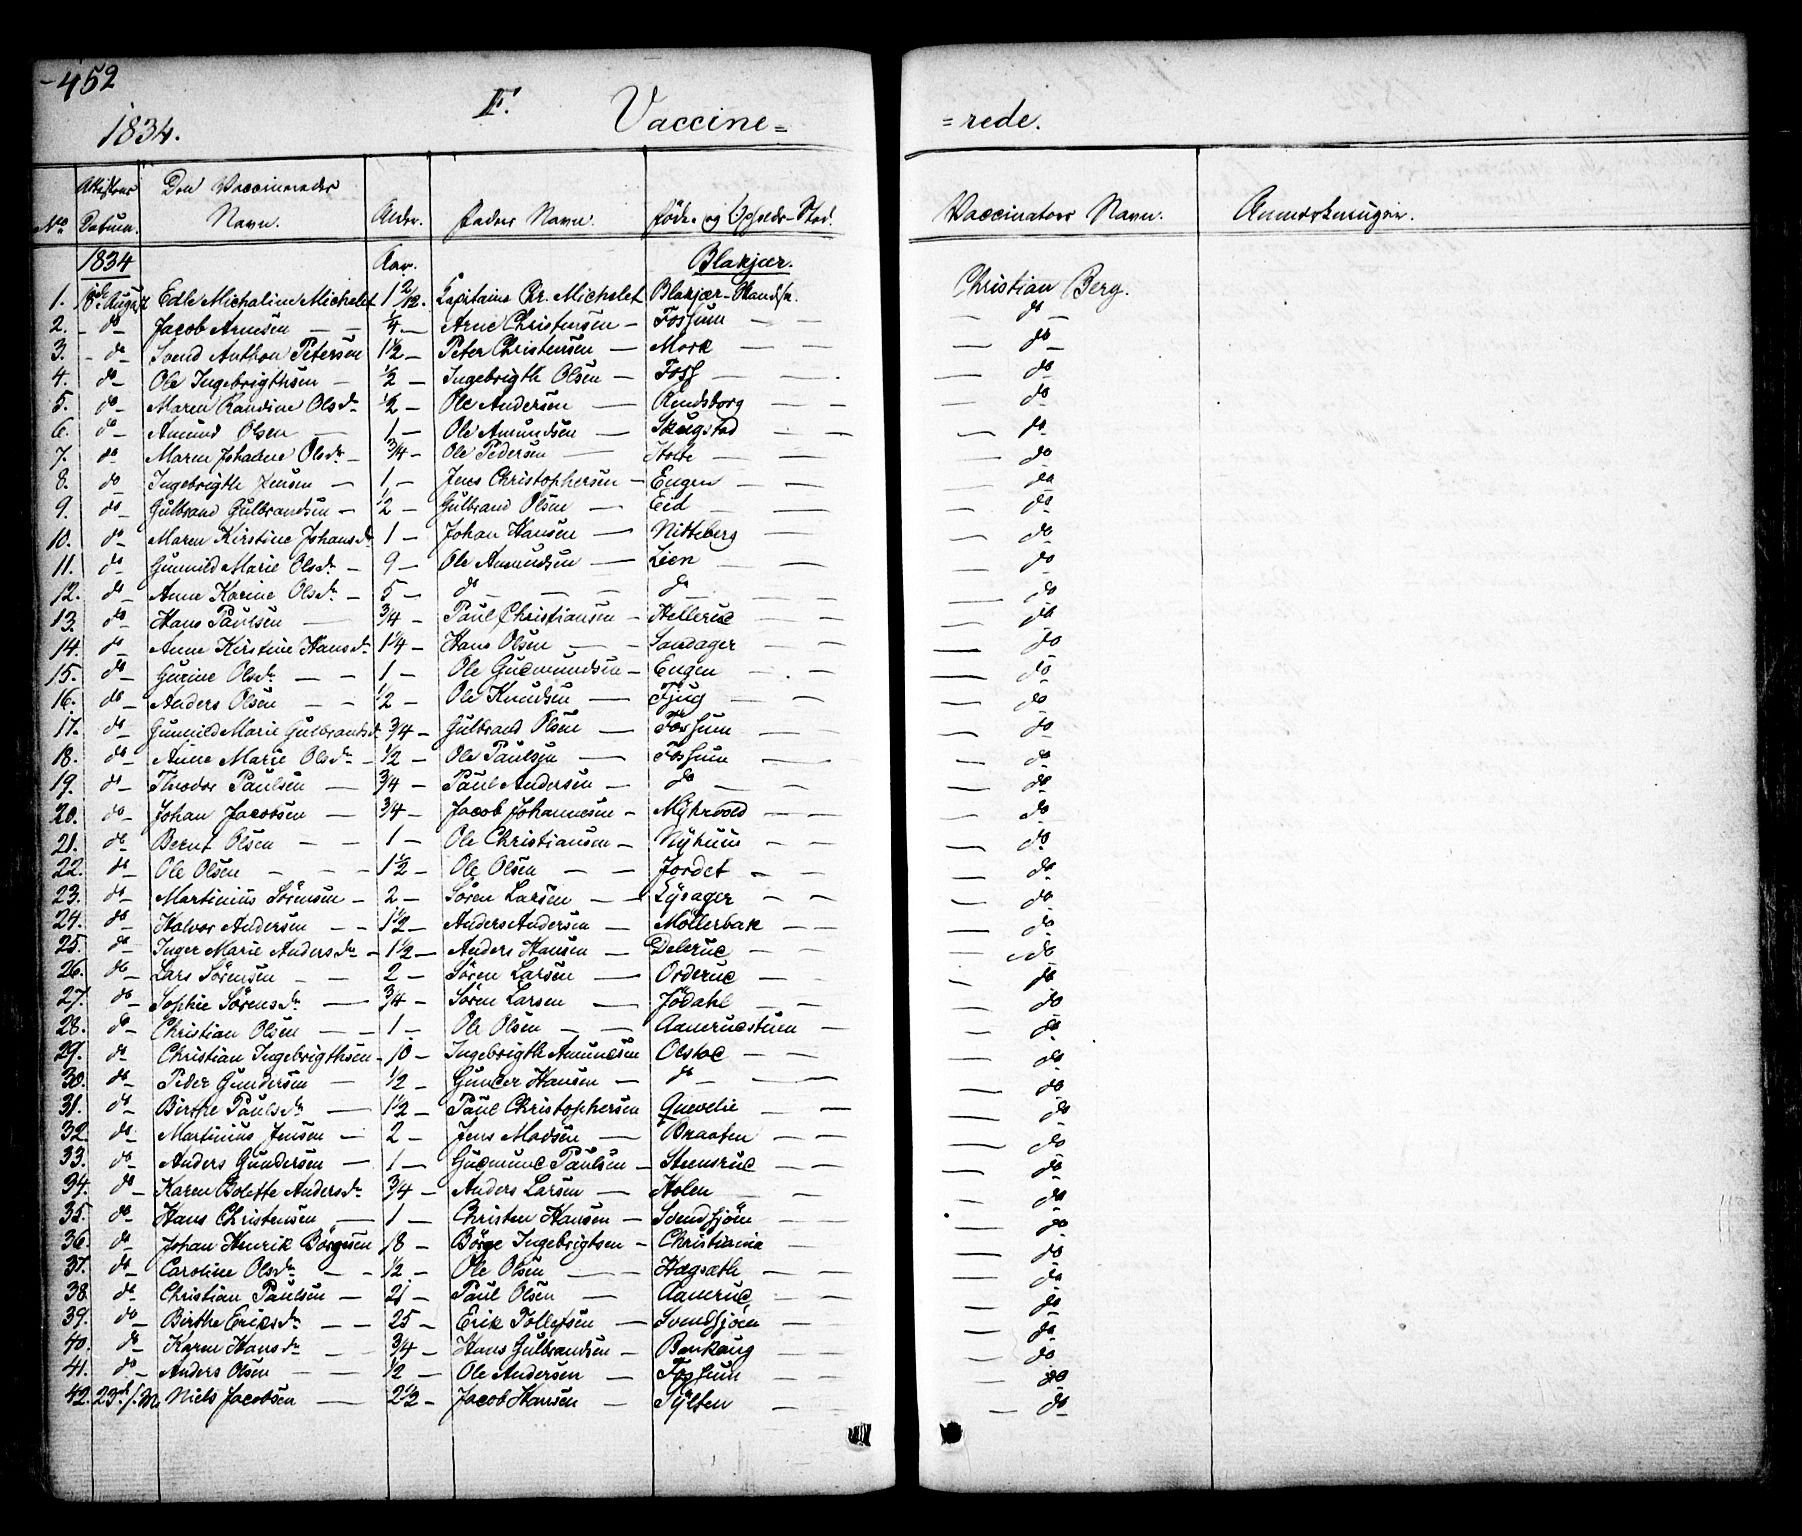 452
1834.
F. Vaccine= =rede.
No Attestens Datum. Den Vaccineredes Navn. Alder. Faders Navn. Føde- og Opholds-Sted. Vaccinateurs Navn. Anmærkninger.
1834 Aar. Blakjær.
1. 18de August Edle Michaline Michelet 1 2/12. Capitaine Chr. Michelet Blakjær-Skandse. Christian Berg.
2. - do Jacob Arnesen — — 1/4 — Arne Christensen — Fossum — — — do —
3. - do Svend Anthon Petersen 1 1/2 — Peter Christensen — Mork — — — do
4. do — Ole Ingebrigthsen — 1/2 — Ingebrigth Olsen — Foss — — — do
5. do — Maren Randine Olsdr 1/2 — Ole Andersen — Rendsborg — — — do
6. do — Amund Olsen — 1 — Ole Amundsen — Skugstad — — — do
7. do Maren Johanne Olsdr — 3/4 — Ole Pedersen — — — — do
8. do Ingebrigth Jensen — 1 — Jens Christophersen — Engen — — — do
9. do — Gulbrand Gulbrandsen — 1/2 — Gulbrand Olsen — Eid — — — do
10. do Maren Kirstine Johansdr 1 — Johan Hansen — Nitteberg — — — do
11. do — Gunnild Marie Olsdr — 9 — Ole Amundsen — Lien — — — do
12. do — Anne Karine Olsdr — 5 — do — — — do — — — do
13. do — Hans Paulsen — 3/4 — Paul Christiansen — Hellerud — — — do
14. do — Anne Kirstine Hansdr 1 1/4 — Hans Olsen — — Sandager — — — do
15. do — Gurine Olsdr — — 1 — Ole Gudmundsen — Engen — — — do
16. do — Anders Olsen — — 1/2 — Ole Knudsen — Tjug — — — do
17. do — Gunnild Marie Gulbrandsdr 3/4 — Gulbrand Olsen — Fossum — — — do
18. do — Anne Marie Olsdr — 1/2 — Ole Paulsen — Fossum — — do
19. do — Theodor Paulsen — 3/4 — Paul Andersen — do — — — do
20. do — Johan Jacobsen — 3/4 — Jacob Johannesen — Myhrvold — — — do
21. do Bernt Olsen — — 1 — Ole Christiansen — Nyhuus — — — do
22. do — Ole Olsen — — — 1 1/2 — Ole Olsen — — Jordet — — — do
23. do — Martinius Sørensen — 2 — Søren Larsen — — Lysager — — — do
24. do — Halvor Andersen — — 1 1/2 — Anders Andersen — Möllerbak — — — do
25. do — Inger Marie Andersdr — 1 1/2 — Anders Hansen — Delerud — — — do
26. do — Lars Sørensen — 2 — Søren Larsen — Orderud — — — do
27. do — Sophie Sørensdr — 3/4 — Søren Larsen — Jödahl — — — do
28. do — Christian Olsen — — 1 — Ole Olsen — — Aamerudstuen — — do
29. do Christian Ingebrigthsen — 10 — Ingebrigth Amundsen Olstad — — — do
30. do — Peder Gundersen — 1/2 — Gunder Hansen — do — — — do
31. do — Birthe Paulsdr — 1 1/2 — Paul Christophersen — — — do
32. do — Martinius Jensen — 2 — Jens Madsen — Braaten — — — do
33. do — Anders Gundersen — 1 — Gudmund Paulsen — Steensrud — — — do
34. do — Karen Bolette Andersdr 3/4 — Anders Larsen — Holen — — — do
35. do — Hans Christensen — 1 — Christen Hansen — Svendsjöen — — — do
36. do — Johan Henrik Börgesen 18 — Börge Ingebrigtsen — Christiania — — — do
37. do — Caroline Olsdr — — 1/2 — Ole Olsen — — Hagsæth — — — do
38. do — Christian Paulsen — 21 — Paul Olsen — Aamerud — — — do
39. do — Birthe Eriksdr — — 25 — Erik Tollefsen — Svendsjöen — — do
40. do — Karen Hansdr — — 3/4 — Hans Gulbrandsen — Bankaug — — — do
41. do — Anders Olsen — — 1/2 — Ole Andersen — Fossum — — — do
42. 23de s. M. Niels Jacobsen — 2 1/2 — Jacob Hansen — Sylten — — — do